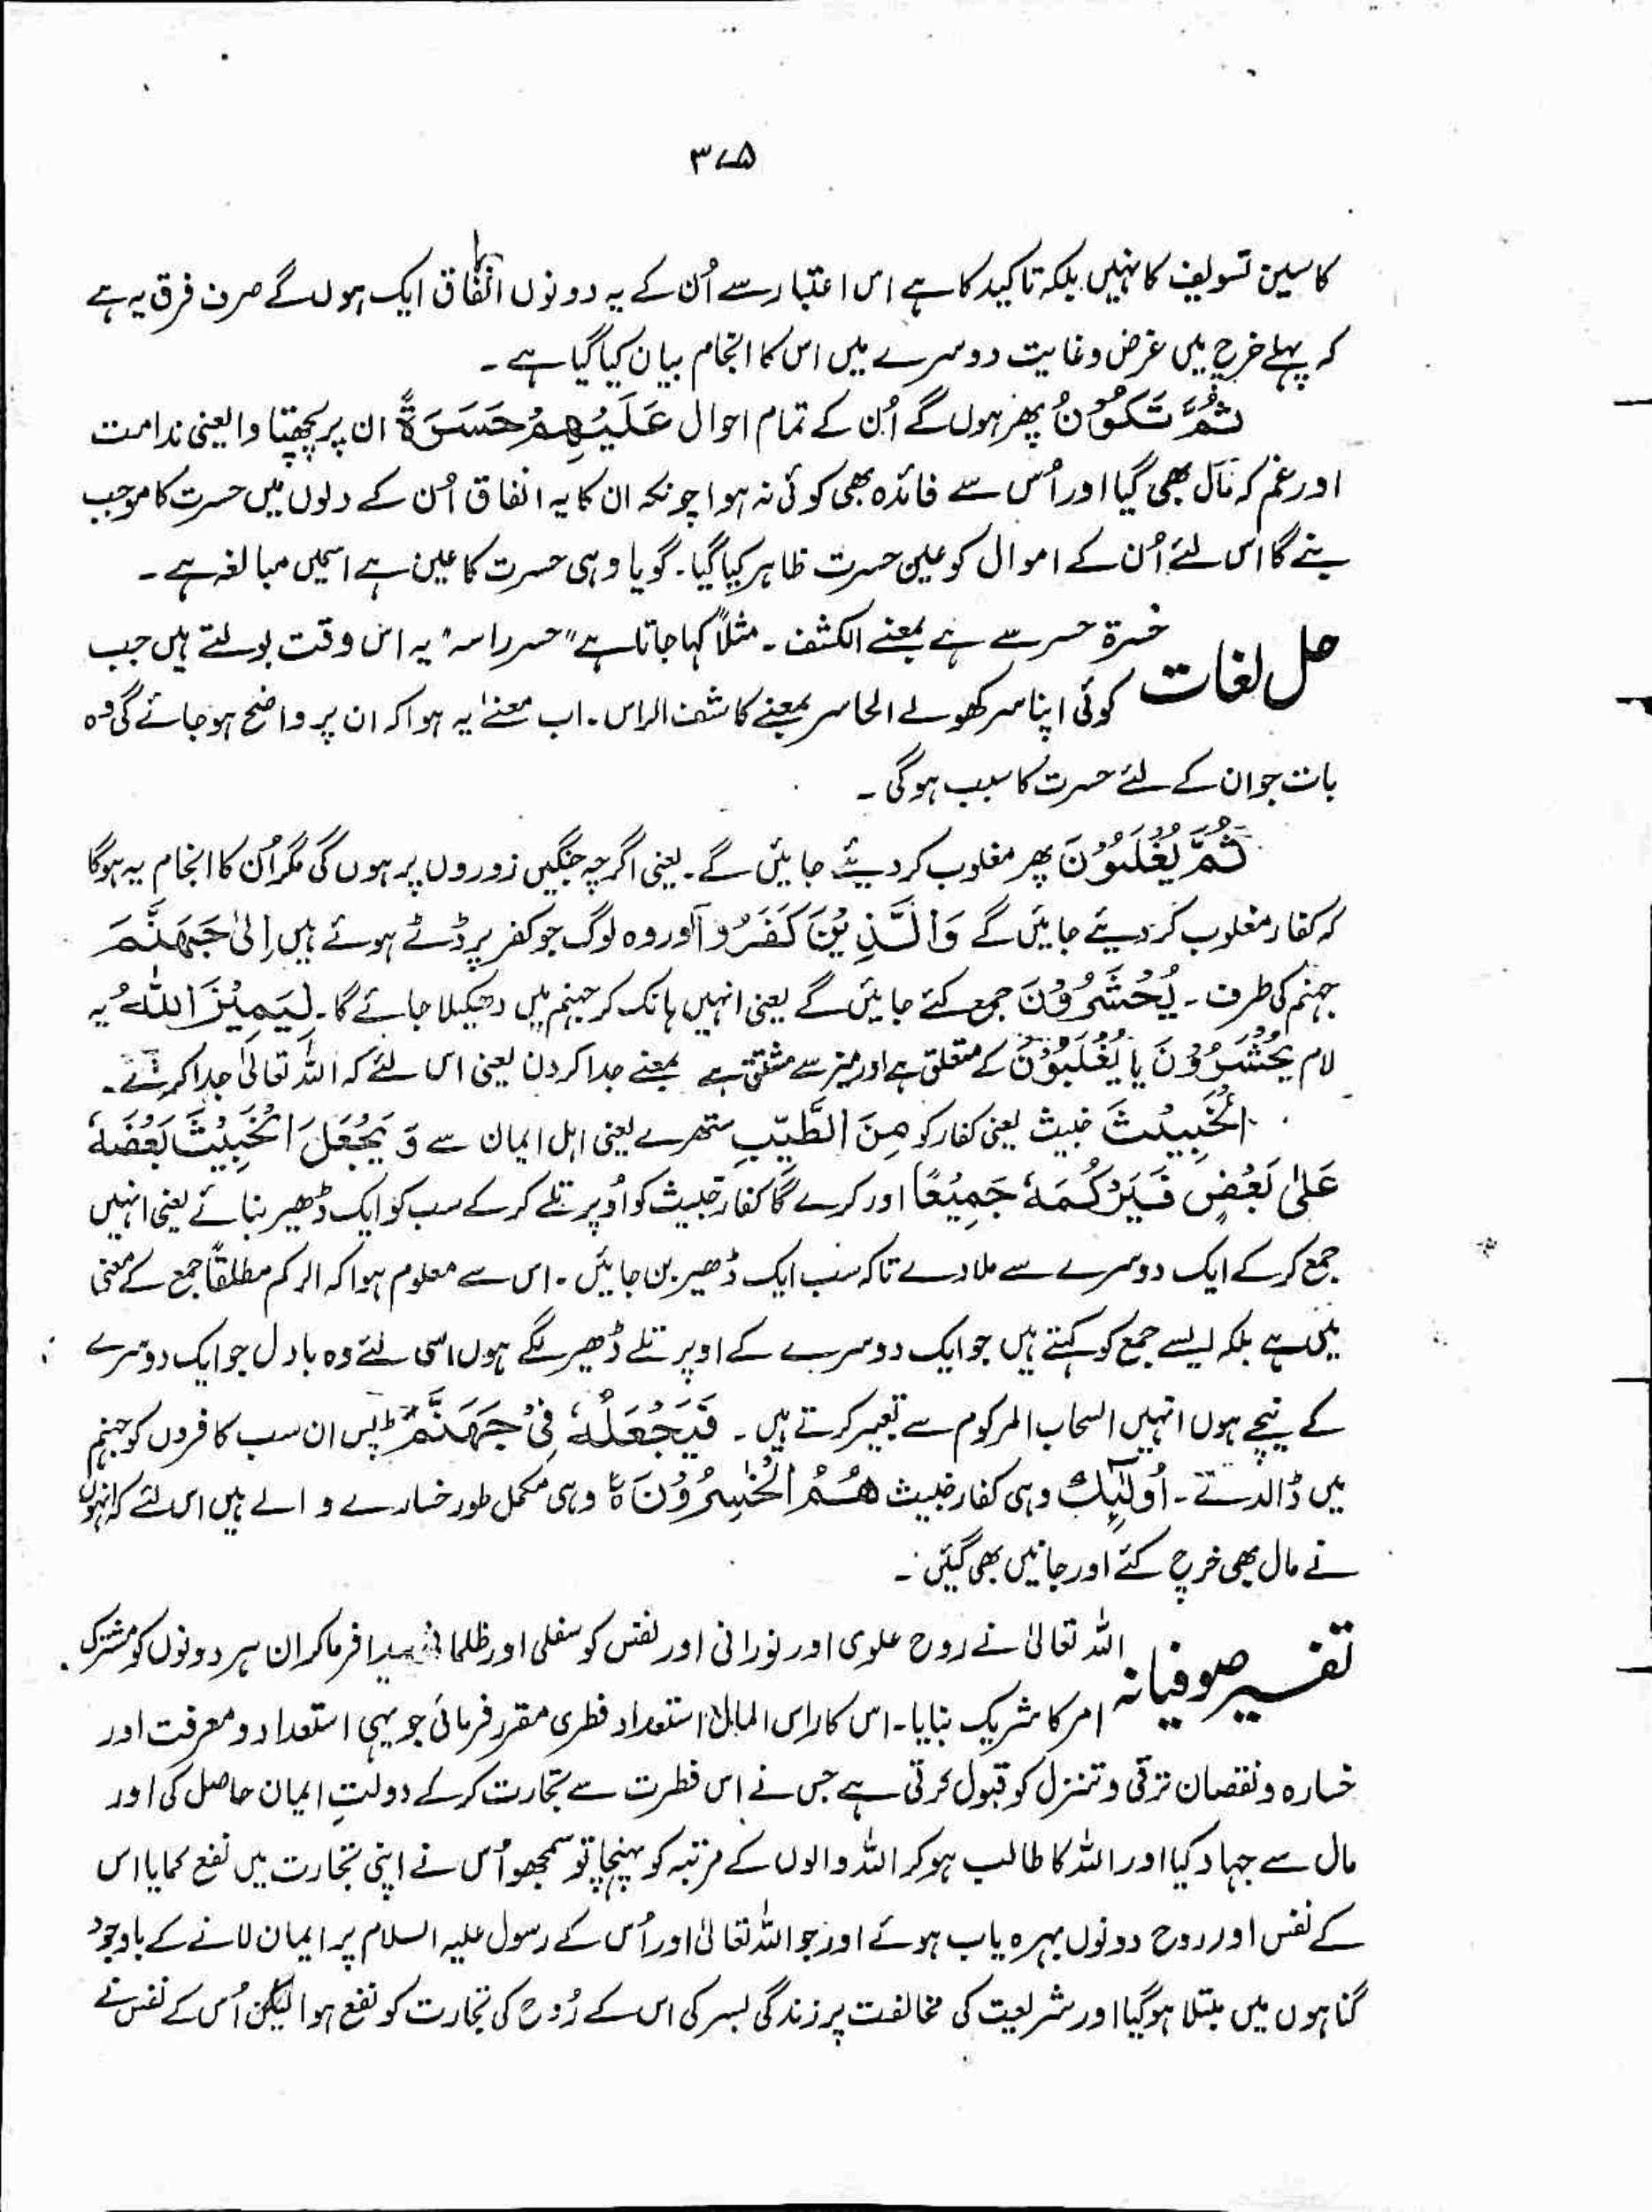 ۳۷۵
کا سین تسویف کا نہیں بلکہ تاکید کا ہے اس اعتبار سے اُن کے یہ دونوں انفاق ایک ہوں گے صرف فرق یہ ہے
کہ پہلے خرچ میں غرض و غایت دوسرے میں اس کا انجام بیان کیا گیا ہے ۔
ثُمَّ تَكُوْنُ پھر ہوں گے اُن کے تمام احوال عَلَيْهِمْ حَسْرَةً ان پر پچھتاوا یعنی ندامت
اور غم کہ مال بھی گیا اور اُس سے فائدہ بھی کوئی نہ ہوا چونکہ ان کا یہ انفاق اُن کے دلوں میں حسرت کا موجب
بنے گا اس لئے اُن کے اموال کو عین حسرت ظاہر کیا گیا ۔ گویا وہی حسرت کا عین ہے اسمیں مبالغہ ہے ۔
حل لغات حسرۃ حسر سے ہے بمعنے الکشف ۔ مثلاً کہا جاتا ہے "حسر راسہ" یہ اس وقت بولتے ہیں جب
کوئی اپنا سر کھولے الحاسر بمعنے کاشف الراس ۔ اب معنےٰ یہ ہوا کہ ان پر واضح ہو جائے گی وہ
بات جو ان کے لئے حسرت کا سبب ہوگی ۔
ثُمَّ يُغْلَبُوْنَ پھر مغلوب کر دیئے جائیں گے ۔ یعنی اگرچہ جنگیں زوروں پر ہوں گی مگر اُن کا انجام یہ ہوگا
کہ کفار مغلوب کر دیئے جائیں گے وَالَّذِيْنَ كَفَرُوْا اور وہ لوگ جو کفر پر ڈٹے ہوئے ہیں اِلٰى جَهَنَّمَ
جہنم کی طرف ۔ يُحْشَرُوْنَ جمع کئے جائیں گے یعنی انہیں ہانک کر جہنم میں دھکیلا جائے گا ۔ لِيَمِيْزَ اللّٰهُ یہ
لام يُحْشَرُوْنَ یا يُغْلَبُوْنَ کے متعلق ہے اور میز سے مشتق ہے بمعنے جدا کردن یعنی اس لئے کہ اللہ تعالیٰ جدا کر دے ۔
الْخَبِيْثَ خبیث یعنی کفار کو مِنَ الطَّيِّبِ ستھرے یعنی اہل ایمان سے وَيَجْعَلَ الْخَبِيْثَ بَعْضَهٗ
عَلٰى بَعْضٍ فَيَرْكُمَهٗ جَمِيْعًا اور کرے گا کفار خبیث کو اُوپر تلے کر کے سب کو ایک ڈھیر بنائے یعنی انہیں
جمع کر کے ایک دوسرے سے ملا دے تاکہ سب ایک ڈھیر بن جائیں ۔ اس سے معلوم ہوا کہ الرکم مطلقاً جمع کے معنی
میں ہے بلکہ ایسے جمع کو کہتے ہیں جو ایک دوسرے کے اوپر تلے ڈھیر لگے ہوں اسی لئے وہ بادل جو ایک دوسرے
کے نیچے ہوں انہیں السحاب المرکوم سے تعبیر کرتے ہیں ۔ فَيَجْعَلَهٗ فِيْ جَهَنَّمَ ط پس ان سب کافروں کو جہنم
میں ڈالدے ۔ اُولٰٓئِكَ وہی کفار خبیث هُمُ الْخٰسِرُوْنَ ہ وہی مکمل طور خسارے والے ہیں اس لئے کہ انہوں
نے مال بھی خرچ کئے اور جانیں بھی گئیں ۔
تفسیر صوفیانہ اللہ تعالیٰ نے روح علوی اور نورانی اور نفس کو سفلی اور ظلمانی پیدا فرما کر ان ہر دونوں کو مشترک
امر کا شریک بنایا ۔ اس کا راس المال استعداد فطری مقرر فرمائی جو یہی استعداد و معرفت اور
خسارہ و نقصان ترقی و تنزل کو قبول کرتی ہے جس نے اس فطرت سے تجارت کر کے دولتِ ایمان حاصل کی اور
مال سے جہاد کیا اور اللہ کا طالب ہو کر اللہ والوں کے مرتبہ کو پہنچا تو سمجھو اُس نے اپنی تجارت میں نفع کمایا اس
کے نفس اور روح دونوں بہرہ یاب ہوئے اور جو اللہ تعالیٰ اور اُس کے رسول علیہ السلام پر ایمان لانے کے باوجود
گناہوں میں مبتلا ہو گیا اور شریعت کی مخالفت پر زندگی بسر کی اس کے رُوح کی تجارت کو نفع ہوا لیکن اُس کے نفس نے